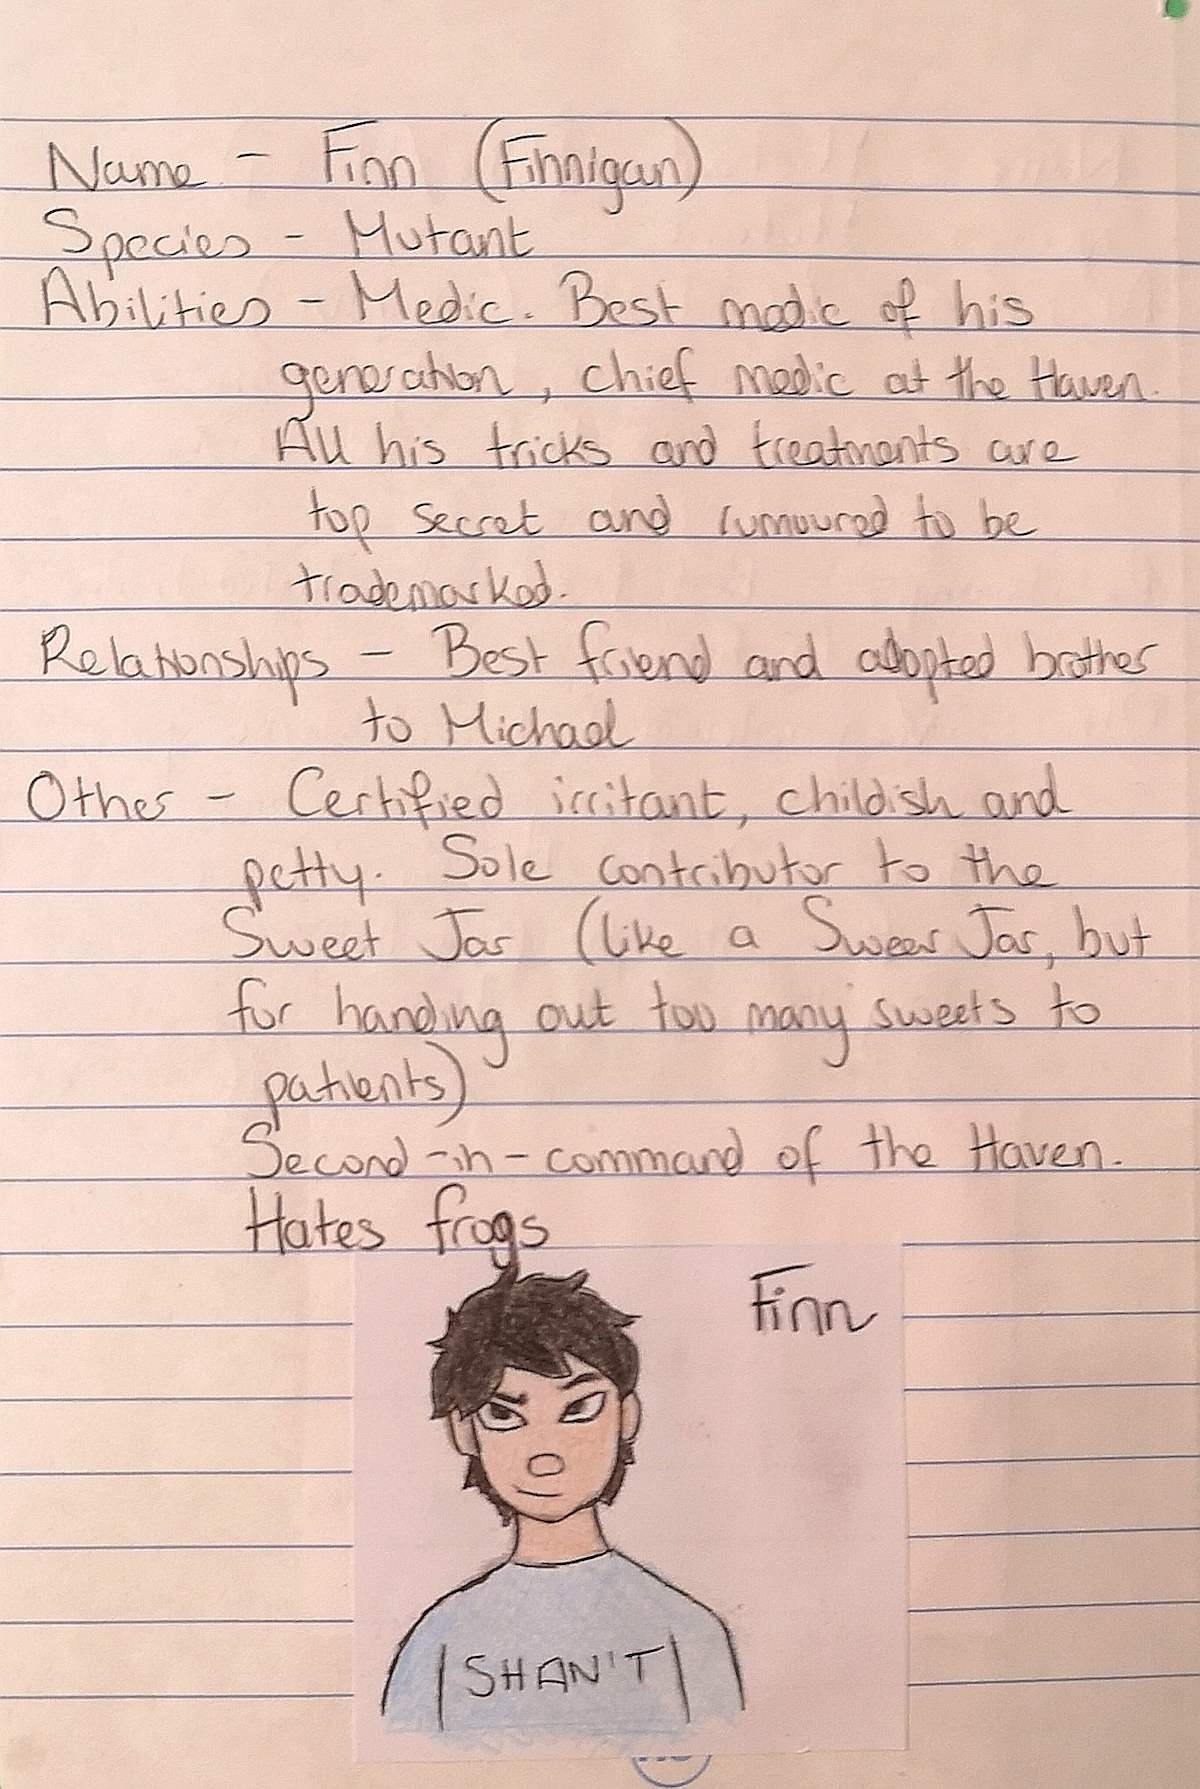 Name - Finn (Finnigan)
Species - Mutant
Abilities - Medic. Best medic of his
generation, chief medic at the Haven.
All his tricks and treatments are
top secret and rumoured to be
trademarked.
Relationships - Best friend and adopted brother
to Michael
Other - Certified irritant, childish and
petty. Sole contributor to the
Sweet Jar (like a Swear Jar, but
for handing out too many sweets to
patients)
Second-in-command of the Haven.
Hates frogs
Finn
SHAN'T